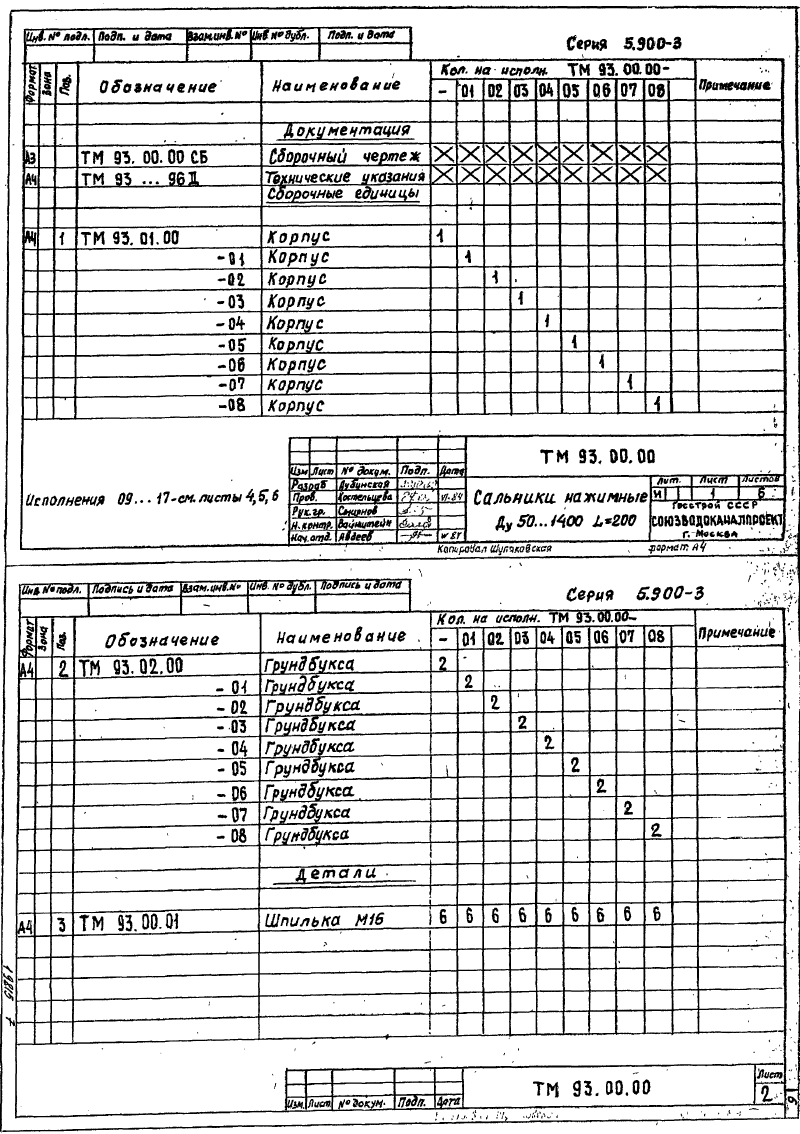 Инв. № подл. Подп. и дата Взам.инв.№ Инв № дубл. Подп. и дата
Серия 5.900-3
Формат Зона Поз. Обозначение Наименование Кол. на исполн. ТМ 93.00.00- Примечание
- 01 02 03 04 05 06 07 08
Документация
А3 ТМ 93.00.00 СБ Сборочный чертеж X X X X X X X X X
А4 ТМ 93 ... 96 Д Технические указания X X X X X X X X X
Сборочные единицы
А4 1 ТМ 93.01.00 Корпус 1
-01 Корпус 1
-02 Корпус 1
-03 Корпус 1
-04 Корпус 1
-05 Корпус 1
-06 Корпус 1
-07 Корпус 1
-08 Корпус 1
Исполнения 09...17-см. листы 4,5,6
ТМ 93.00.00
Изм Лист № докум. Подп. Дата
Разраб Дубинская
Пров. Костельцева VI.84
Рук.гр. Смирнов
Н.контр. Вайнштейн
Нач.отд. Авдеев
Сальники нажимные
Ду 50...1400 L=200
Лит. Лист Листов
И 1 6
Госстрой СССР
СОЮЗВОДОКАНАЛПРОЕКТ
г. Москва
Копировал Шулаковская формат А4
Инв № подл. Подпись и дата Взам.инв.№ Инв. № дубл. Подпись и дата
Серия 5.900-3
Формат Зона Поз. Обозначение Наименование Кол. на исполн. ТМ 93.00.00- Примечание
- 01 02 03 04 05 06 07 08
А4 2 ТМ 93.02.00 Грундбукса 2
-01 Грундбукса 2
-02 Грундбукса 2
-03 Грундбукса 2
-04 Грундбукса 2
-05 Грундбукса 2
-06 Грундбукса 2
-07 Грундбукса 2
-08 Грундбукса 2
Детали
А4 3 ТМ 93.00.01 Шпилька М16 6 6 6 6 6 6 6 6 6
19815 7
ТМ 93.00.00
Лист
2
Изм. Лист № докум. Подп. Дата